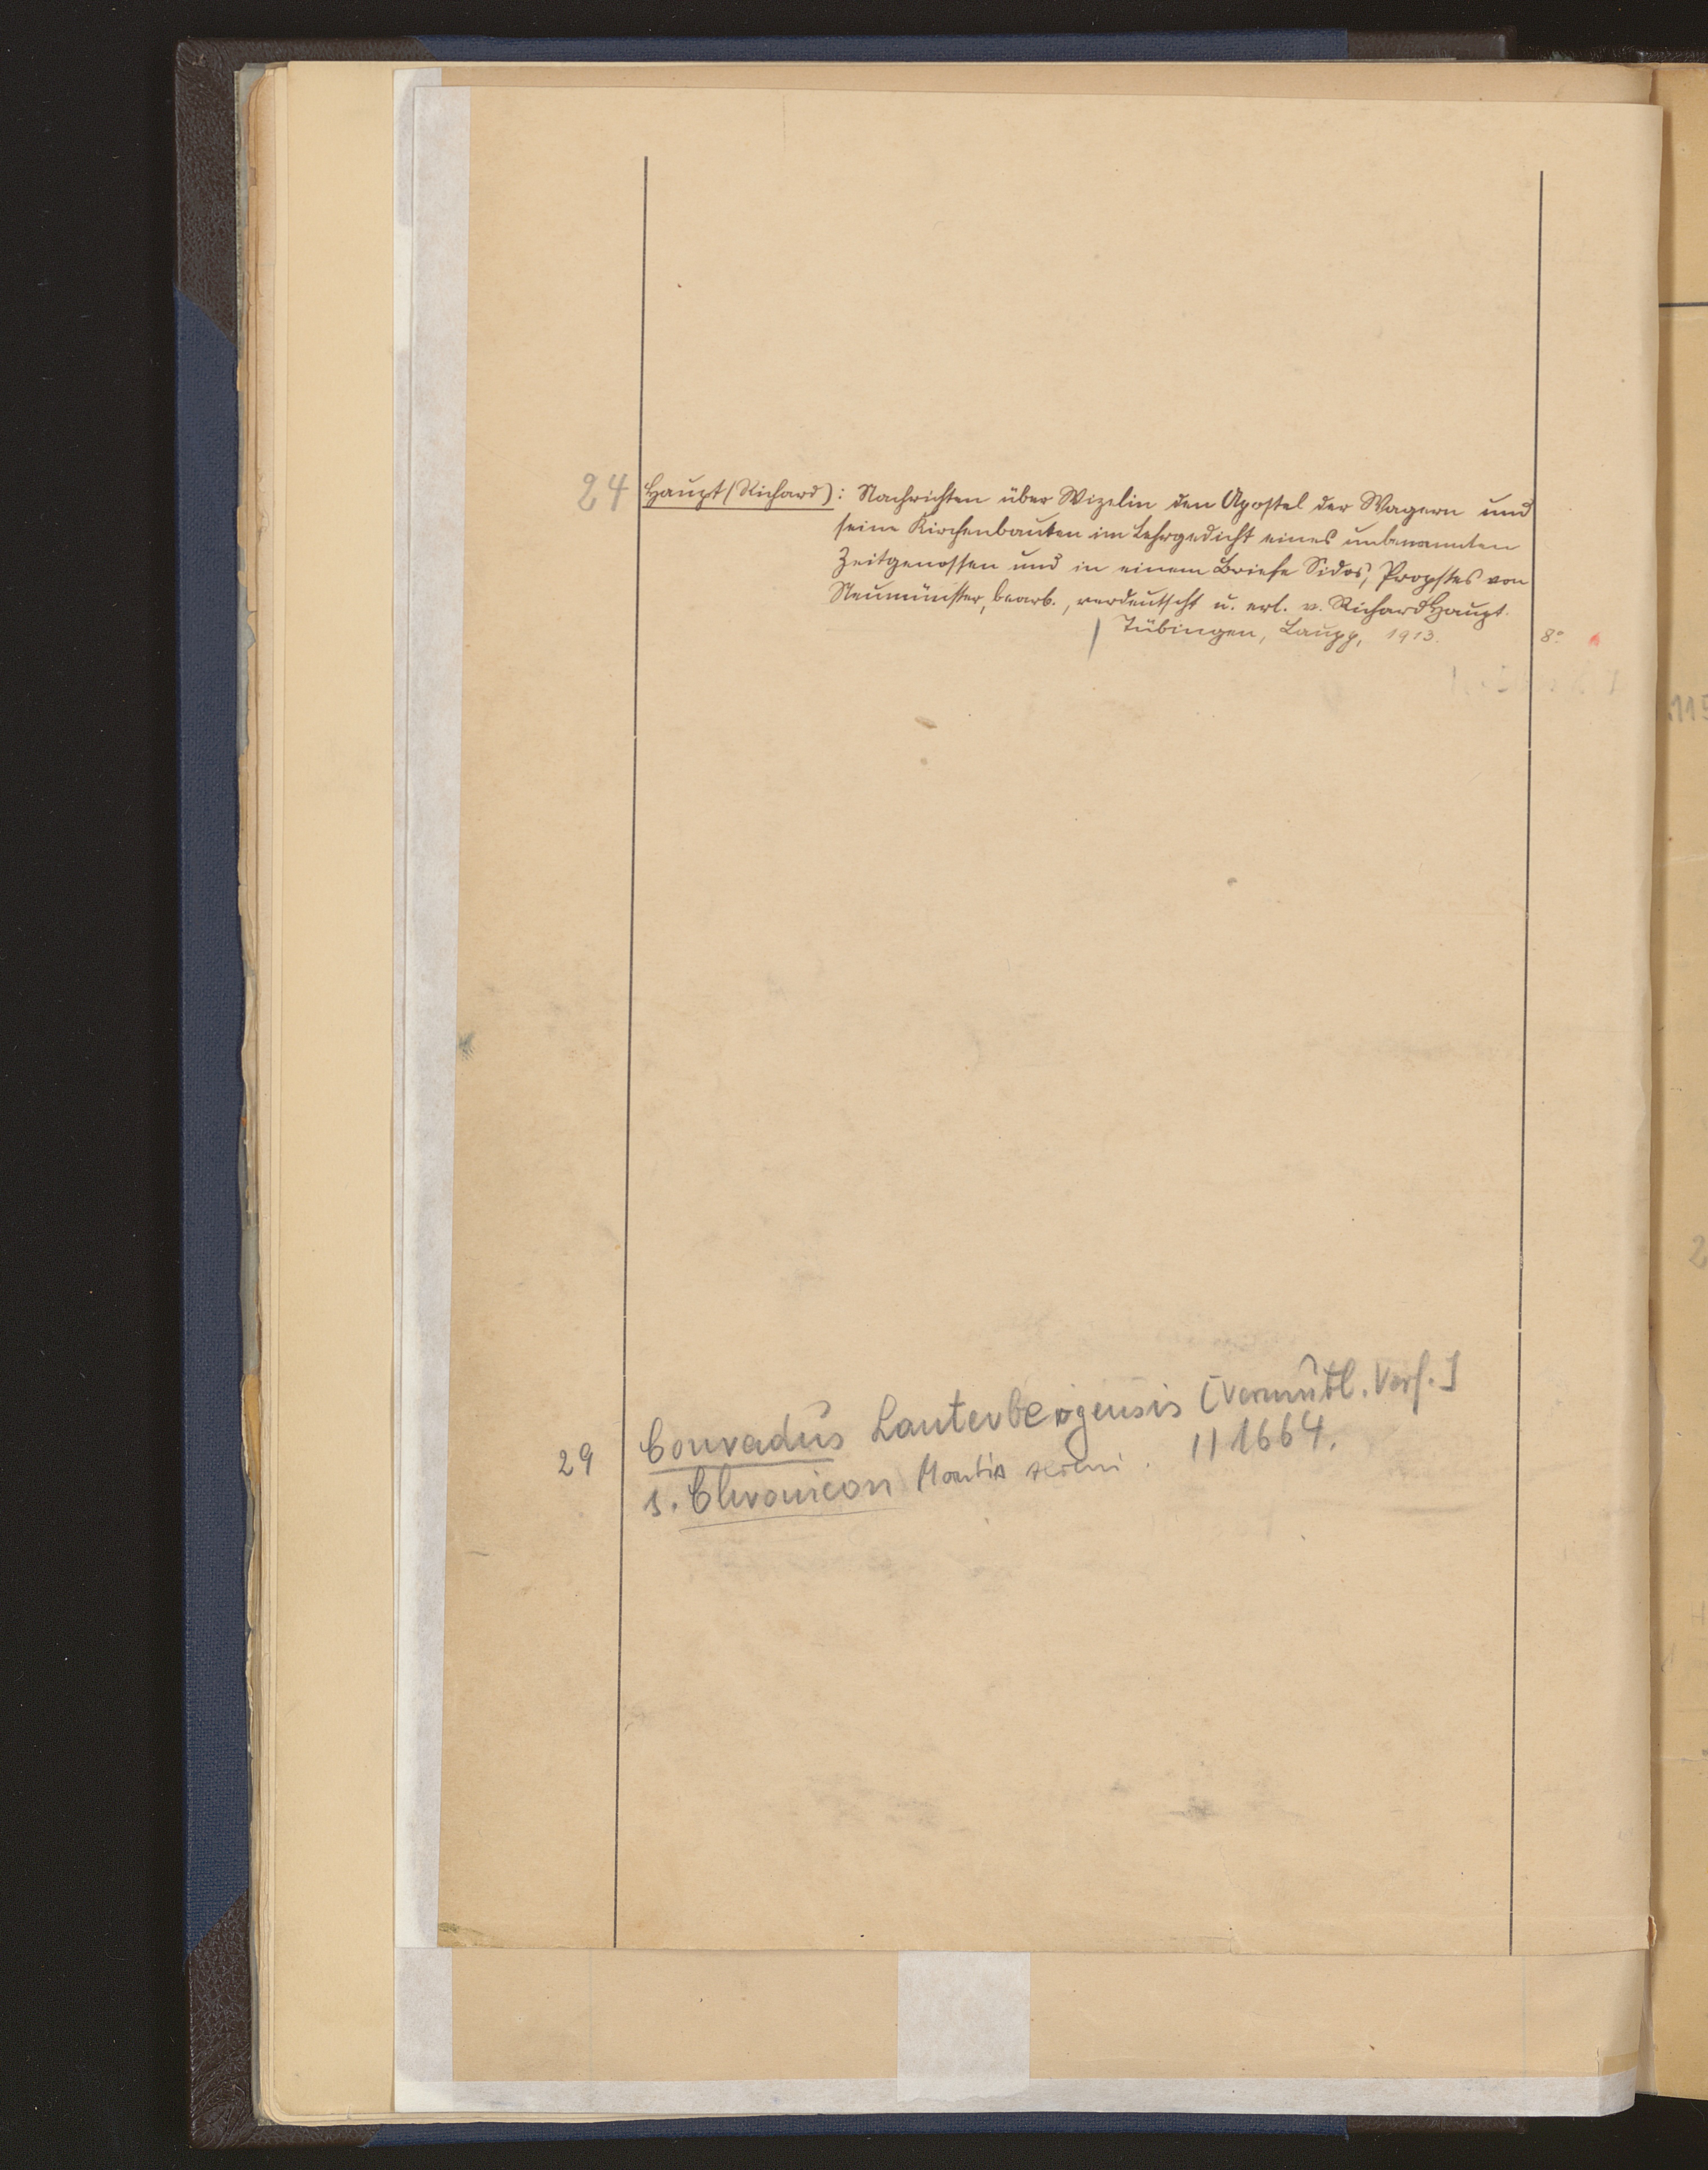 24 Haupt (Richard): Nachrichten über Vizelin den Apostel der Wagern und
seine Kirchenbauten im Lehrgedicht eines unbenannten
Zeitgenossen und in einem Briefe Sidos, Propstes von
Neumünster, bearb., verdeutscht u. erl. v. Richard Haupt.
Tübingen, Laupp, 1913. 8°
29 Conradus Lauterbergensis [vermutl. Verf.]
s. Chronicon Montis sereni. 11 1664.